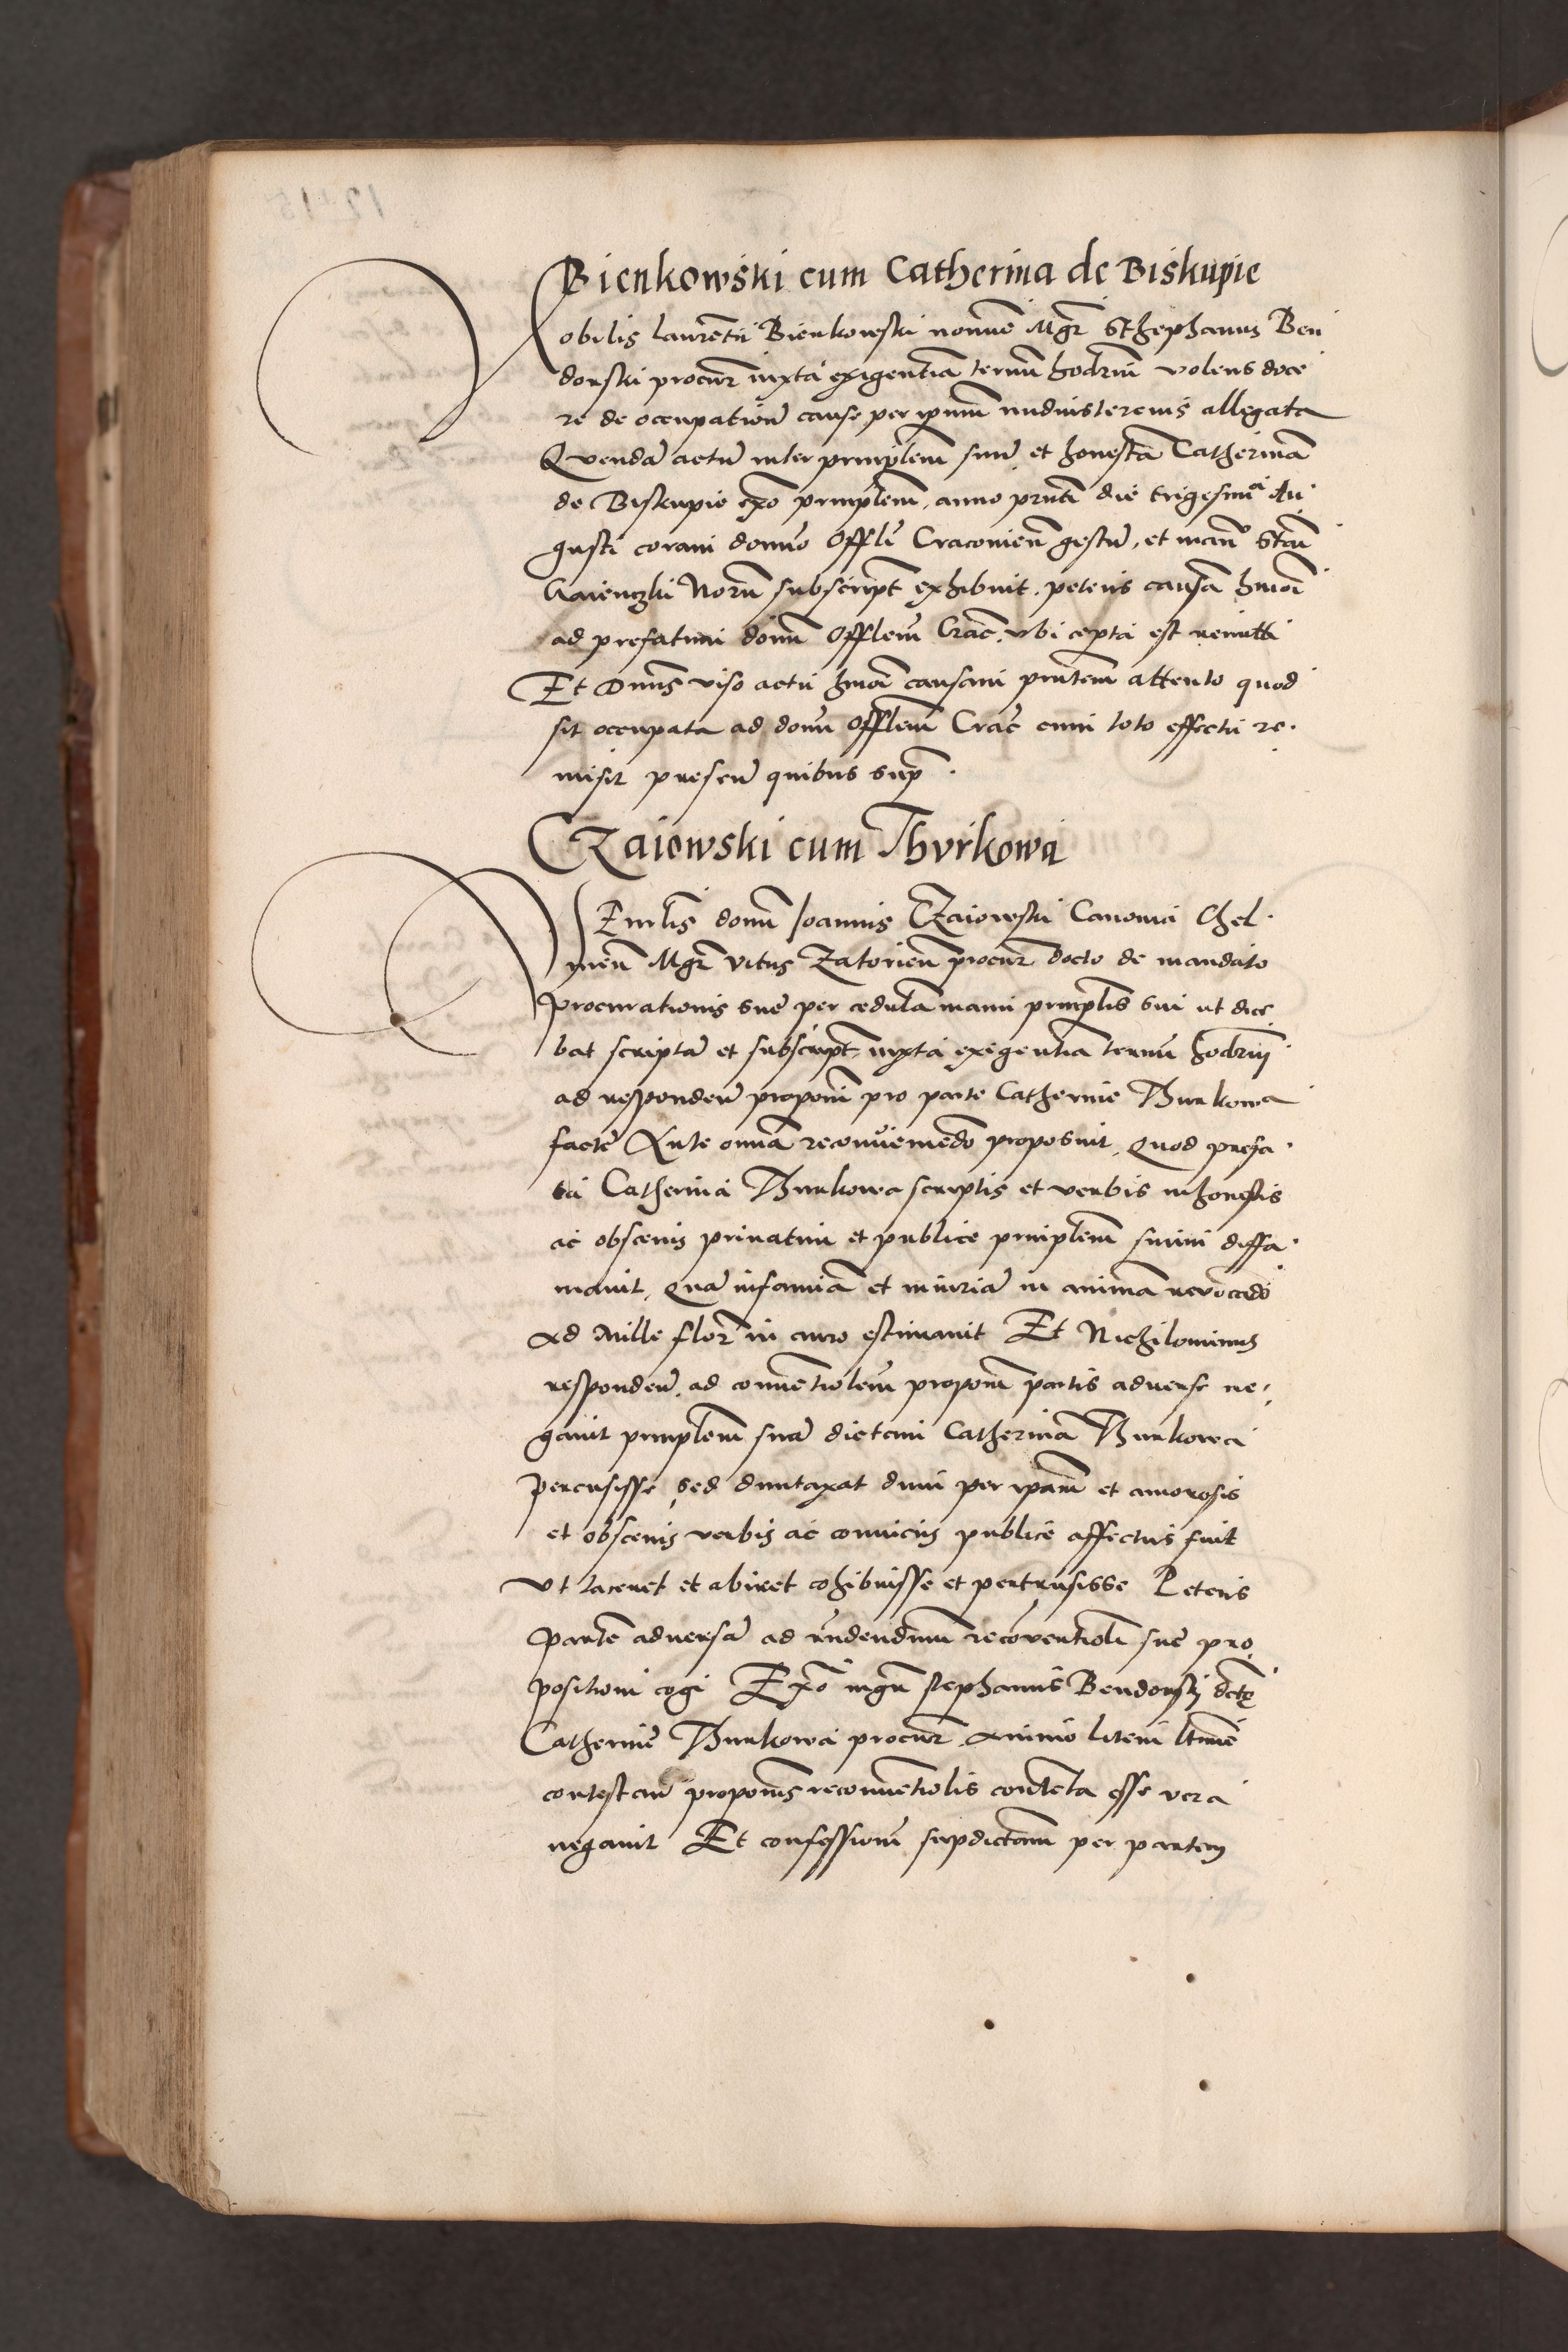 Bienkowski cum Catherina de Biskupie
Nobilis Laurentii Bienkowski nomine Mgr Sthephanus Ben
dorski procur iuxta exigentiam termi hodrni volens doce
re de occupatione cause per ipsum nudiustercius allegata
Quendam actum inter principlem suum et honestam Catherinam
de Biskupie ex principlem, anno prnti die trigesima Au
gusti coram domno Offli Cracovien gestum, et manu Stani
Notrii subscript exhibuit. petens causam hmoi
ad prefatum domn Offlem Crac. ubi cepta est remitti
Et Dnus viso actu hmoi causam prntem attento quod
sit occupata ad domn Offlem Crac cum toto effectu re.
misit presen quibus sup.
CZaiowski cum Thvrkowa
domn Joannis CZaiowski Canonici Chel.
men Mgr Vitus Zatorien procur docto de mandato
procurationis sue per cedulam manu principlis sui ut dice
bat scriptam et subscript iuxta exigentiam termi hodrni
ad responden proponi pro parte Catherine Thurkowa
facte Ante omnia reconveniendo proposuit, Quod prefa.
ta Catherina Thurkowa scriptis et verbis inhonestis
ac obscenis privatim et publice principlem suum diffa.
mavit, Quam infamiam et iniuriam in animam revocando
ad Mille flor in auro estimavit Et Nichilominus
responden. ad conventiolem proponi partis adverse ne,
gavit principlem suum dictam Catherinam Thurkowa
percusisse, sed duntaxat dum per ipsam et amorosis
et obscenis verbis ac conviciis publice affectus fuit
Ut taceret et abiret cohibuisse et pertrusisse Petens
partem adversam ad rndendum reconventioli sue pro
positioni cogi Exo mgr stephanus Bendorski dcte
Catherine Thurkowa procur animo litem
contestan proponis reconventiolis contenta esse vera
negavit Et confessionem supdictam per partem